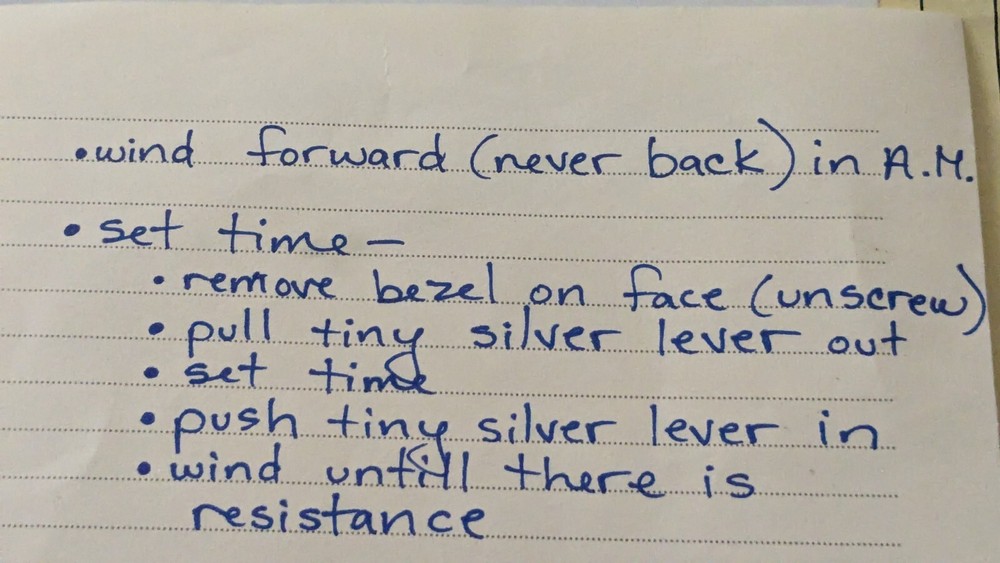 • wind forward (never back) in A.M.
• set time –
• remove bezel on face (unscrew)
• pull tiny silver lever out
• set time
• push tiny silver lever in
• wind untill there is
resistance